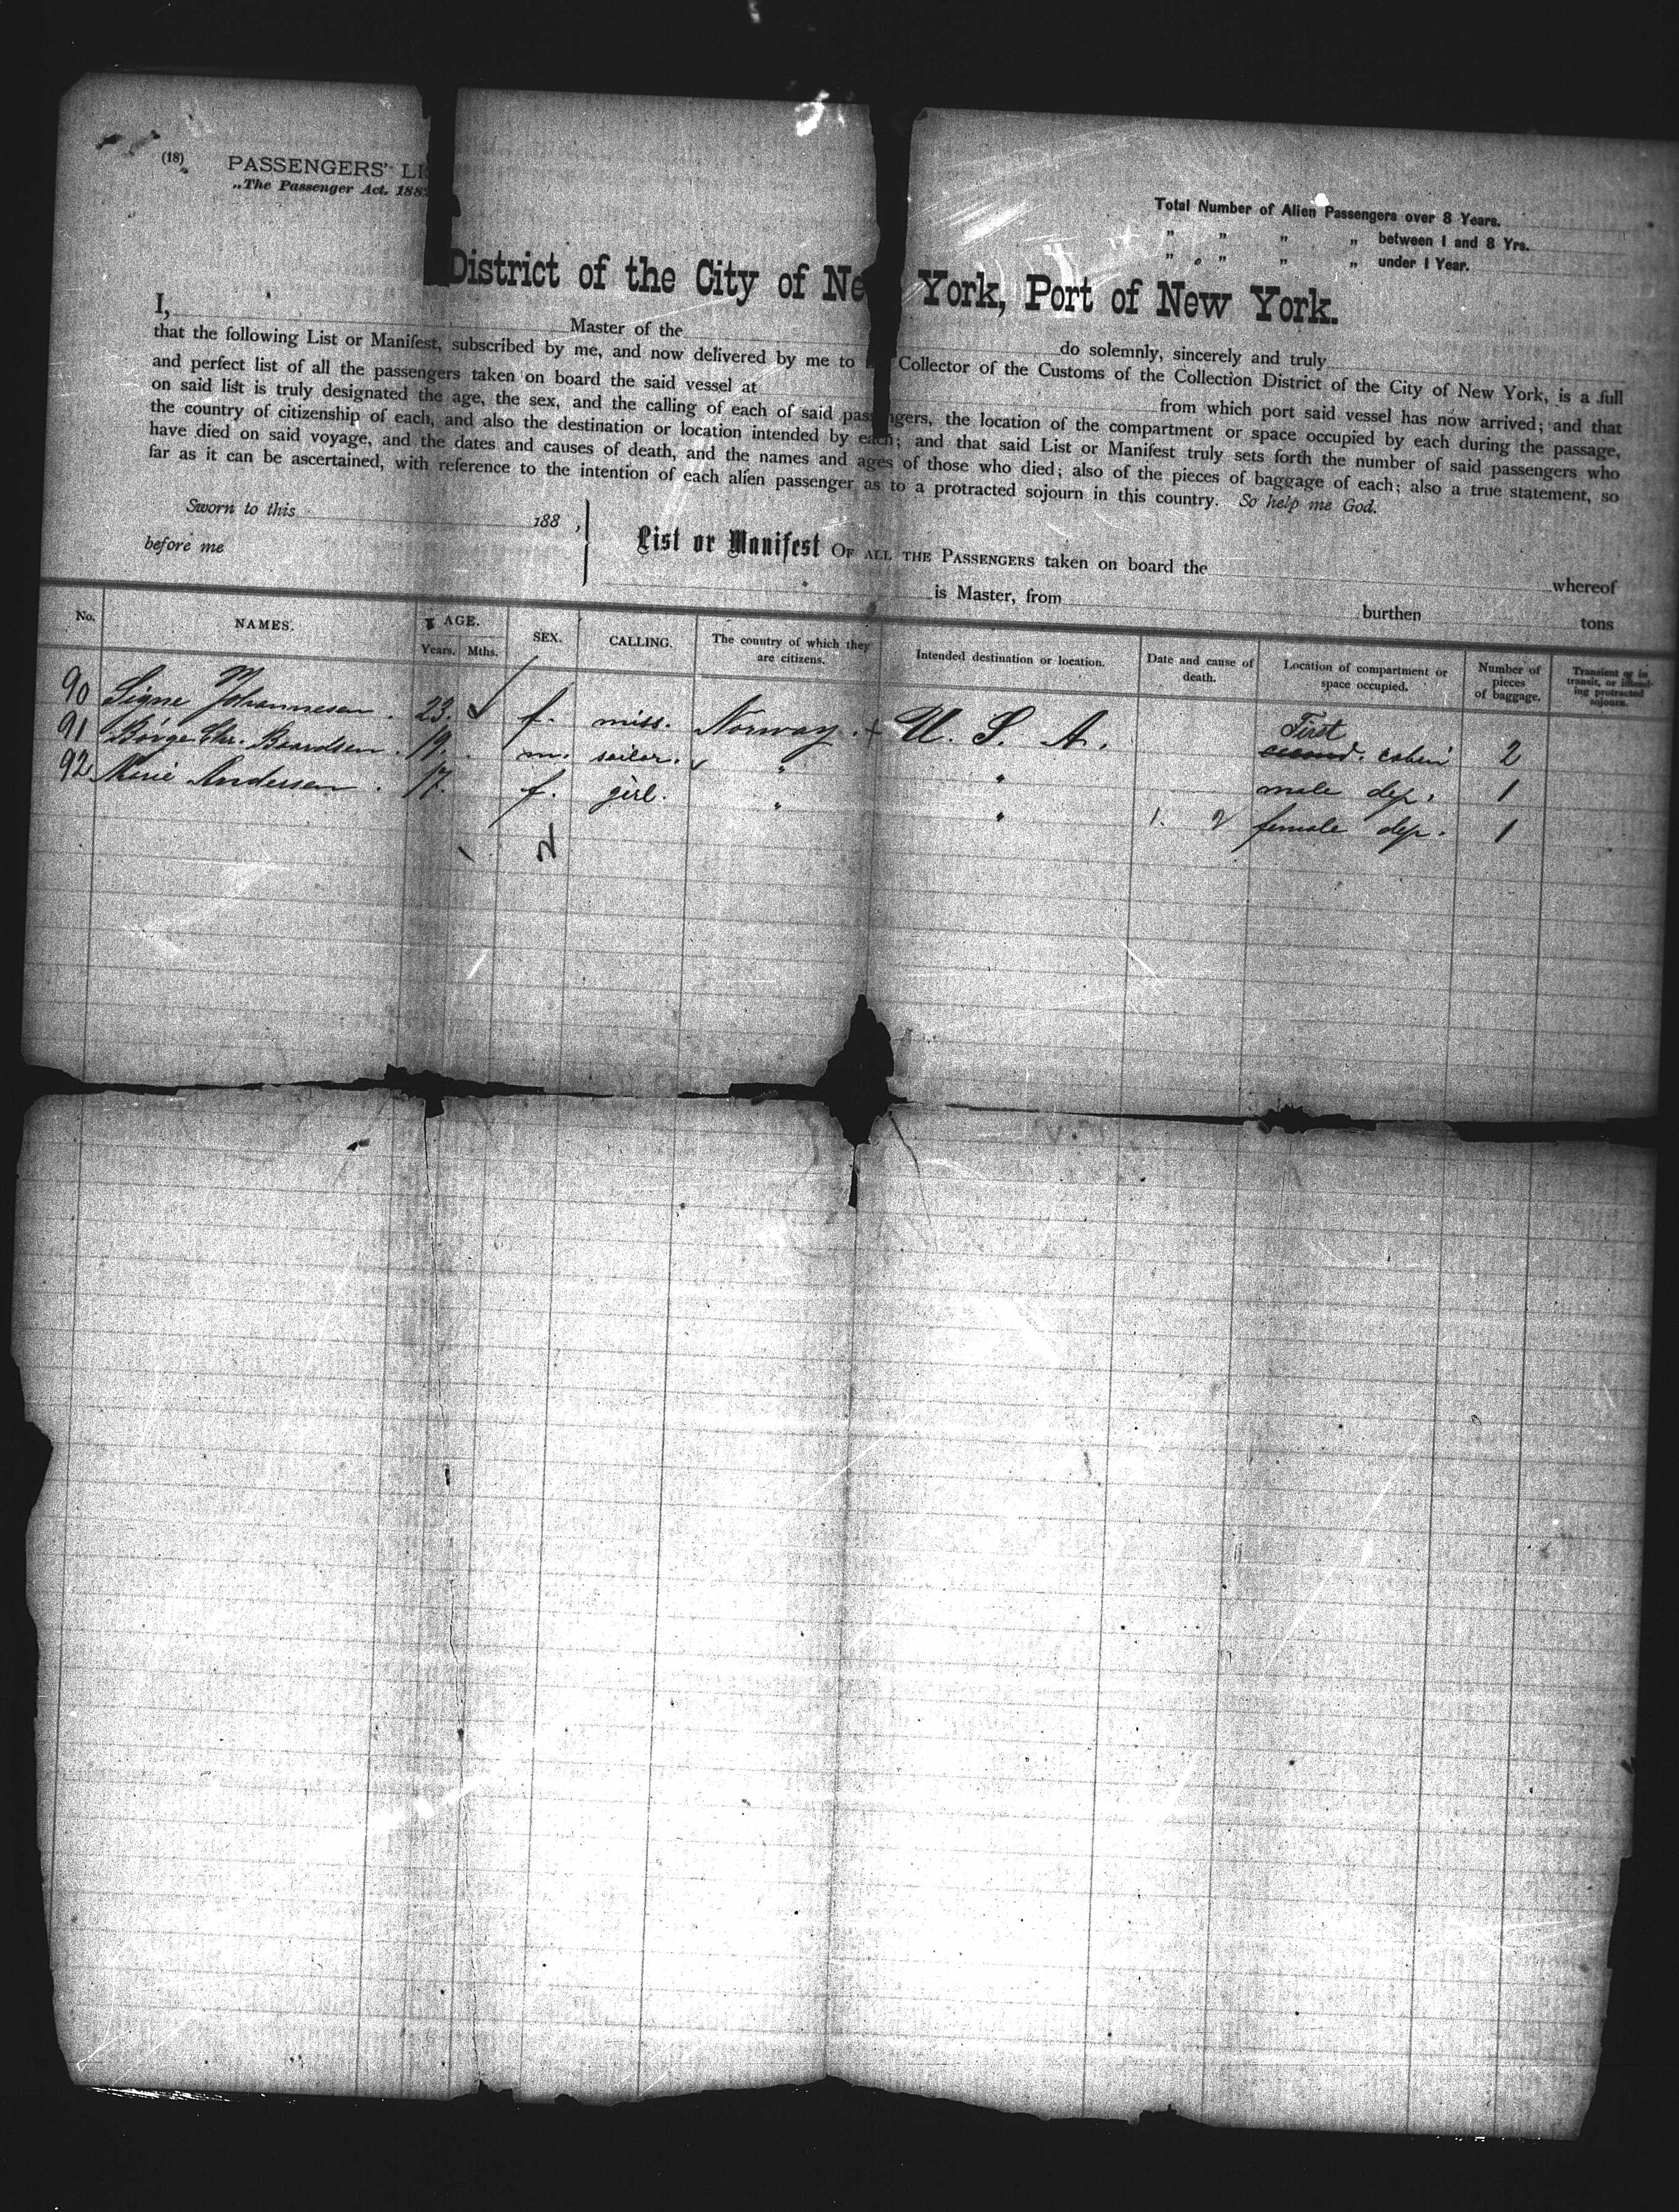 (18) PASSENGERS' LI
„The Passenger Act. 188
Total Number of Alien Passengers over 8 Years.
„ „ „ „ between 1 and 8 Yrs.
„ „ „ „ under 1 Year.
District of the City of Ne York, Port of New York.
I, Master of the do solemnly, sincerely and truly
that the following List or Manifest, subscribed by me, and now delivered by me to Collector of the Customs of the Collection District of the City of New York, is a full
and perfect list of all the passengers taken on board the said vessel at from which port said vessel has now arrived; and that
on said list is truly designated the age, the sex, and the calling of each of said pass ngers, the location of the compartment or space occupied by each during the passage,
the country of citizenship of each, and also the destination or location intended by each; and that said List or Manifest truly sets forth the number of said passengers who
have died on said voyage, and the dates and causes of death, and the names and ages of those who died; also of the pieces of baggage of each; also a true statement, so
far as it can be ascertained, with reference to the intention of each alien passenger as to a protracted sojourn in this country. So help me God.
Sworn to this 188 ,
before me
List or Manifest OF ALL THE PASSENGERS taken on board the whereof
is Master, from burthen tons
No. NAMES. AGE. Years. Mths. SEX. CALLING. The country of which they are citizens. Intended destination or location. Date and cause of death. Location of compartment or space occupied. Number of pieces of baggage. Transient or in transit, or intending protracted sojourn.
90 Signe M Johannesen. 23. f. miss. Norway. + U. S. A. First second. cabin 2
91 Börge Chr. Baardsen. 19. m. sailor. " " male dep. 1
92 Marie Andersen. 17. f. girl. " " 1. 2 female dep. 1
1. 2